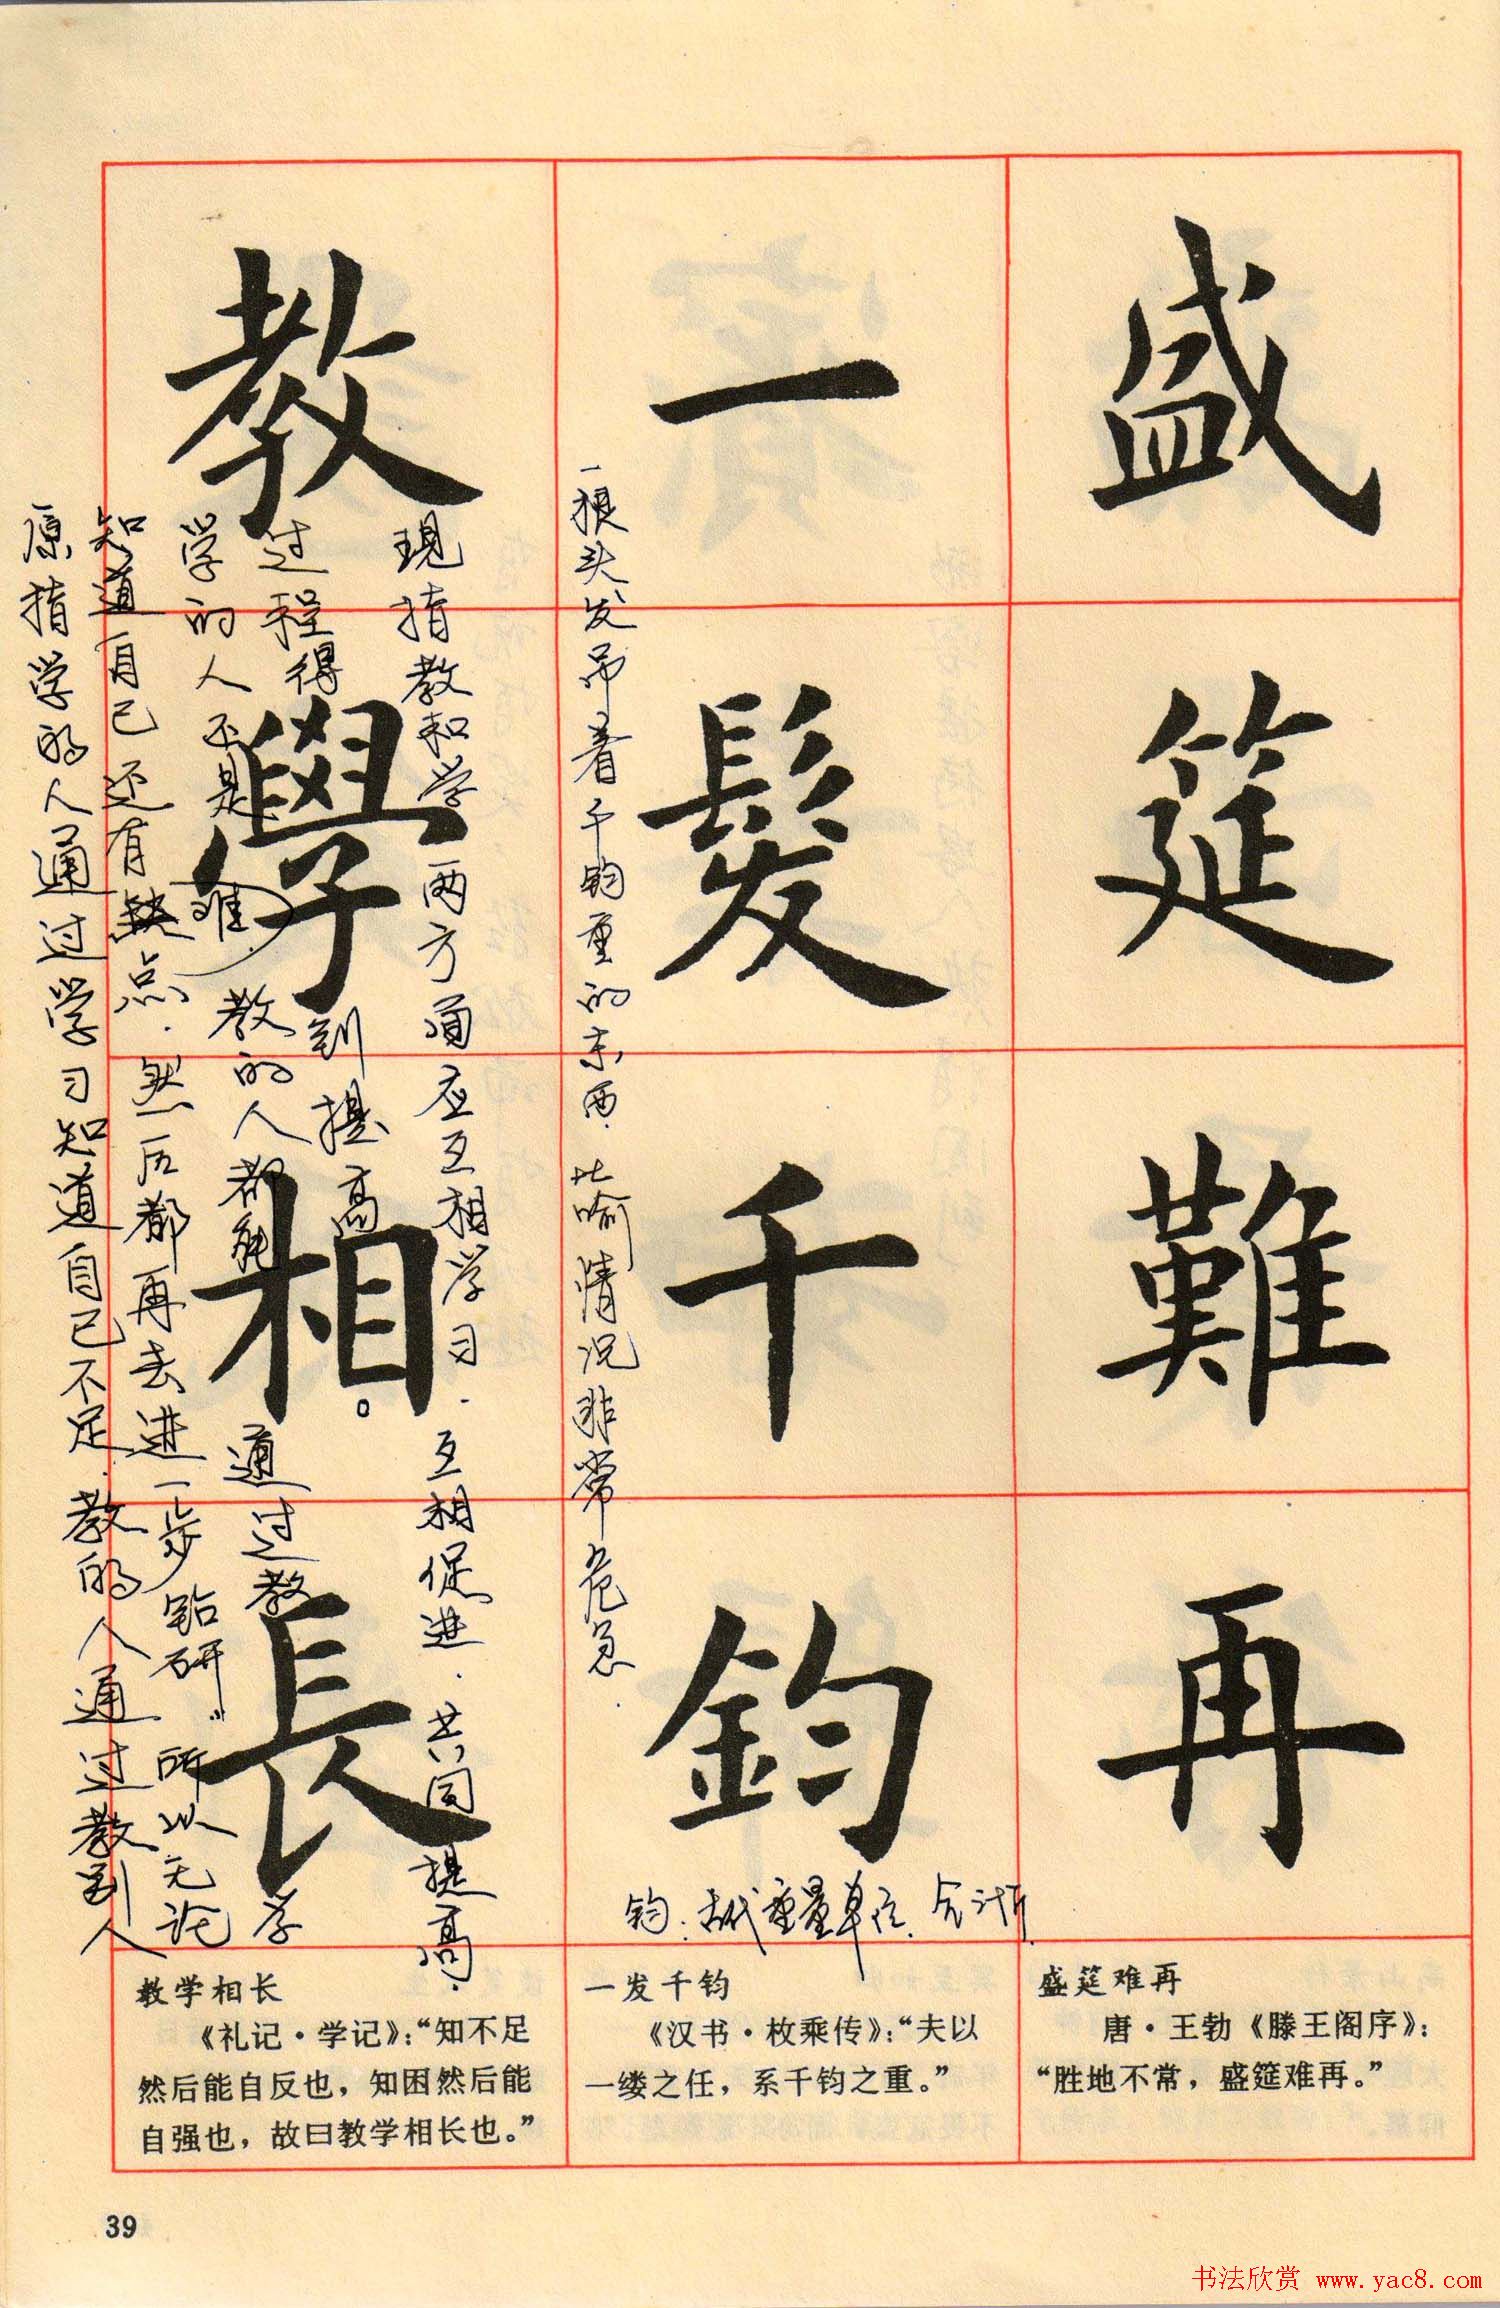 盛筵難再
一髮千鈞
教學相長
一根头发吊着千钧重的东西.比喻情况非常危急.
钧.古代重量单位.合
现指教和学两方面应互相学习.互相促进.共同提高.
原指学的人通过学习知道自己不足.教的人通过教别人
知道自己还有缺点.然后都再去进一步钻研.所以无论
学的人还是
教的人都能
通过教
学
过程得
到提高。
盛筵难再
唐·王勃《滕王阁序》：
“胜地不常，盛筵难再。”
一发千钧
《汉书·枚乘传》：“夫以
一缕之任，系千钧之重。”
教学相长
《礼记·学记》：“知不足
然后能自反也，知困然后能
自强也，故曰教学相长也。”
39
书法欣赏 www.yac8.com